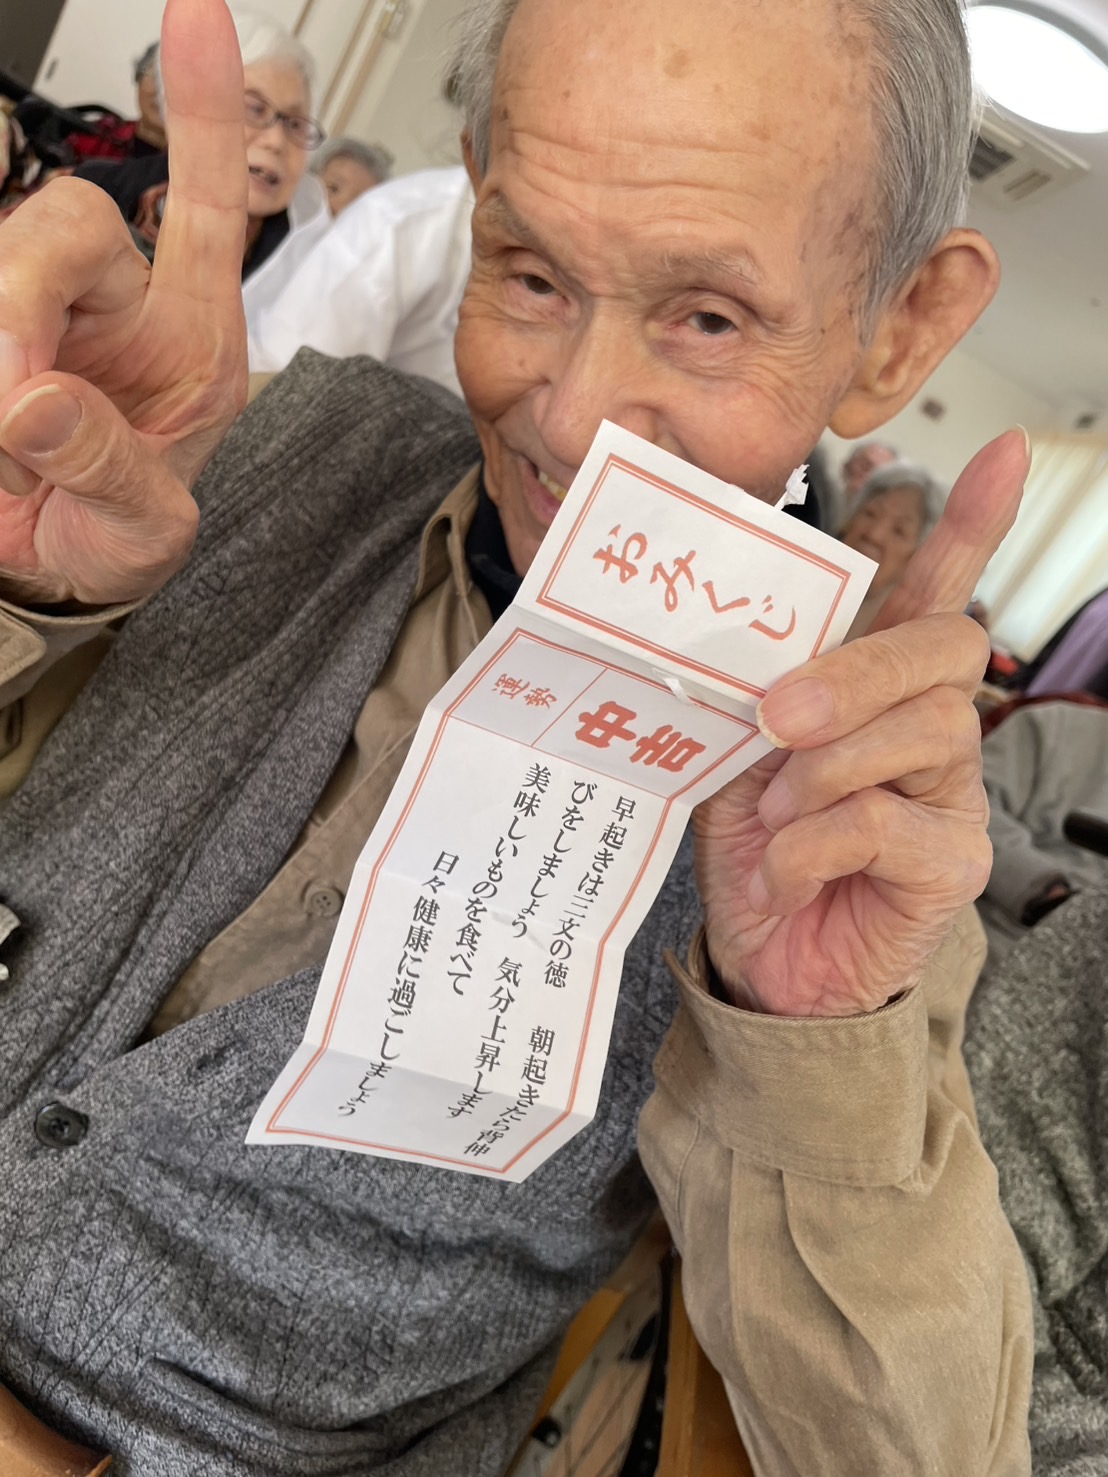 おみくじ
運勢
中吉
早起きは三文の徳　朝起きたら背伸
びをしましょう　気分上昇します
美味しいものを食べて
日々健康に過ごしましょう